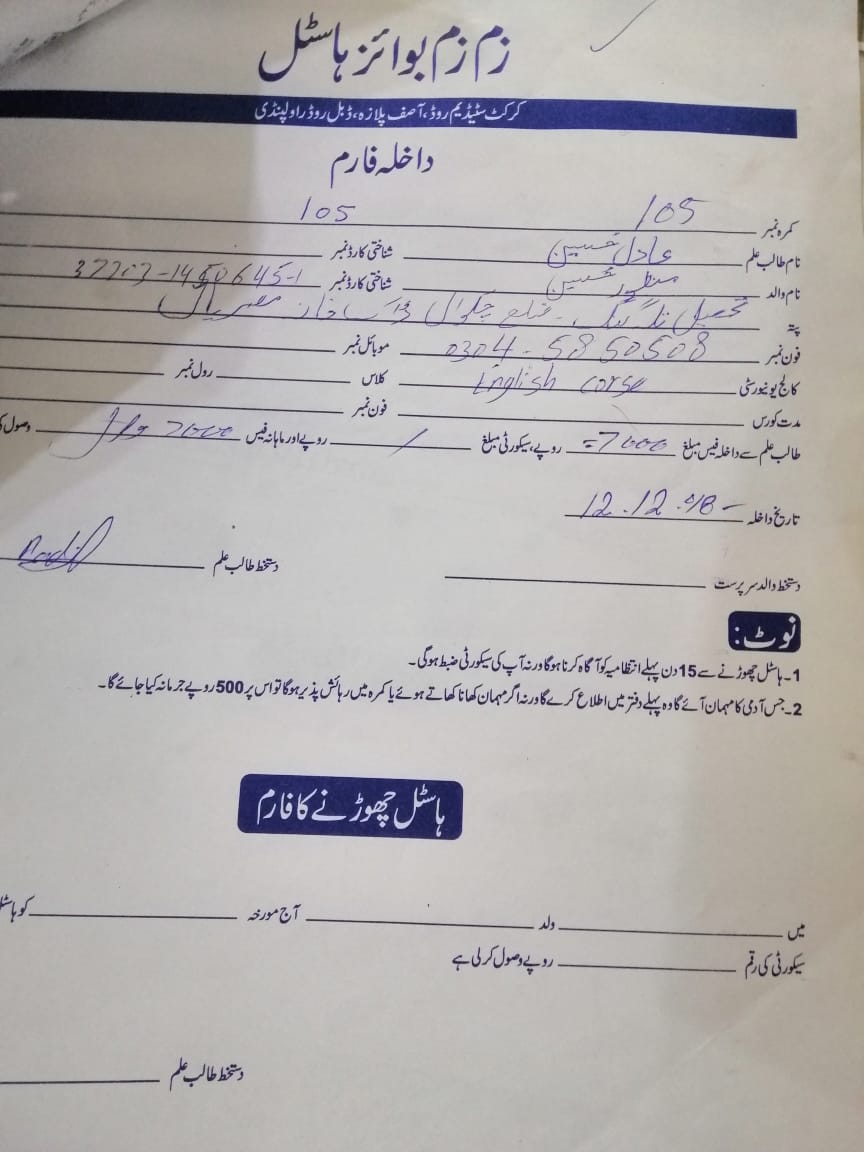 زم زم بوائز ہاسٹل
کرکٹ سٹیڈیم روڈ، آصف پلازہ، ڈبل روڈ راولپنڈی
داخلہ فارم
کمرہ نمبر 105 105
نام طالب علم عادل حسین شناختی کارڈ نمبر
نام والد منظور حسین شناختی کارڈ نمبر
پتہ تحصیل تلہ گنگ۔ ضلع چکوال ڈاکخانہ
فون نمبر 0304-5850508 موبائل نمبر
کالج یونیورسٹی English corse کلاس رول نمبر
مدت کورس فون نمبر
طالب علم سے داخلہ فیس مبلغ 7000= روپے، سیکورٹی مبلغ / روپے اور ماہانہ فیس 7000 وصول
تاریخ داخلہ 12.12.
دستخط والد سرپرست دستخط طالب علم Aadil
نوٹ:
1۔ ہاسٹل چھوڑنے سے 15 دن پہلے انتظامیہ کو آگاہ کرنا ہوگا ورنہ آپ کی سیکورٹی ضبط ہوگی۔
2۔ جس آدمی کا مہمان آئے گا وہ پہلے دفتر میں اطلاع کرے گا ورنہ اگر مہمان کھانا کھاتے ہوئے یا کمرہ میں رہائش پذیر ہوگا تو اس پر 500 روپے جرمانہ کیا جائے گا۔
ہاسٹل چھوڑنے کا فارم
میں ولد آج مورخہ کو ہاسٹل
سیکورٹی کی رقم روپے وصول کر لی ہے
دستخط طالب علم